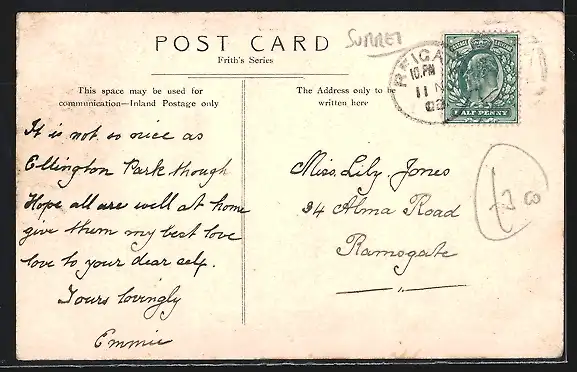 POST CARD
Frith's Series
SURREY
This space may be used for
communication—Inland Postage only
The Address only to be
written here
REIGA
10.PM
11 N
03
HALF PENNY
It is not so nice as
Ellington Park though
Hope all are well at home
give them my best love
love to your dear self.
Yours lovingly
Emmie
Miss. Lily. Jones
34 Alma Road
Ramsgate